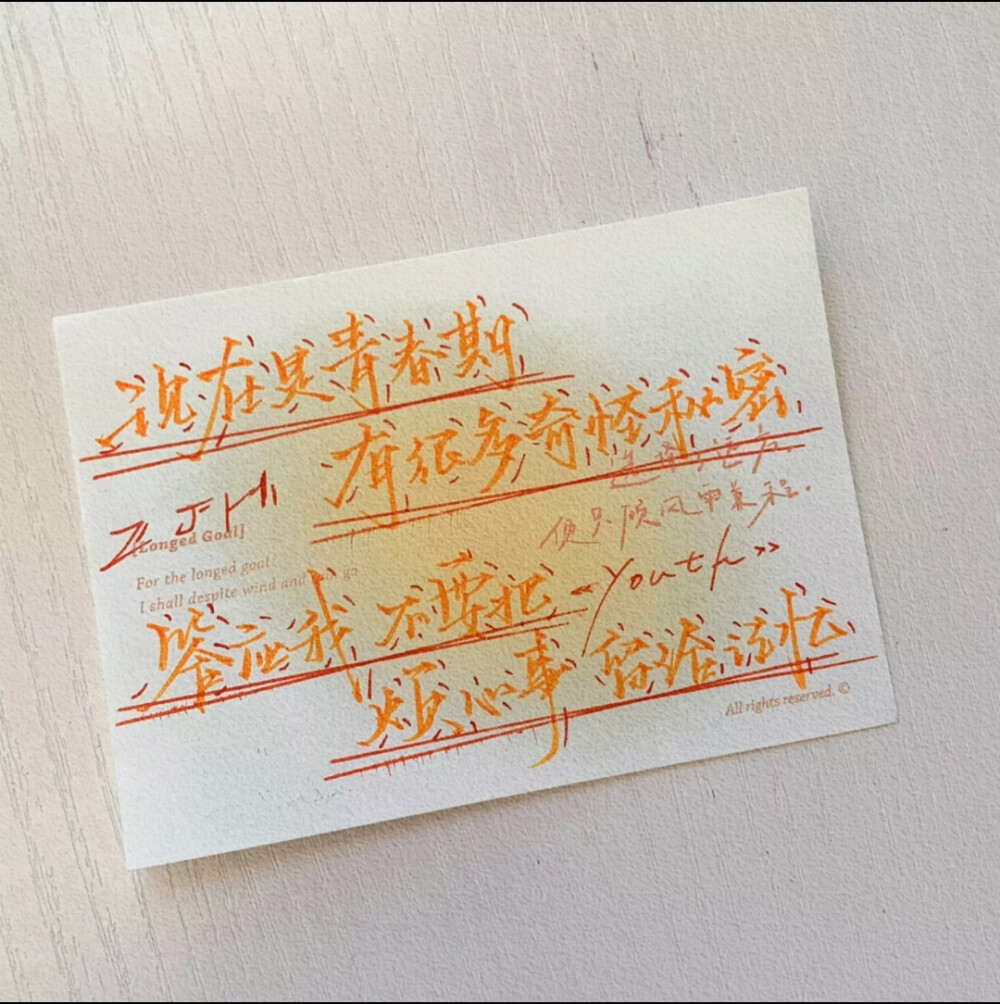 现在是青春期
有很多奇怪秘密
便只顾风雨兼程.
Z J-H
[Longed Goal]
For the longed goal
I shall despite wind and rain go
答应我 不要把
«Youth»
烦心事 留给记忆
All rights reserved. ©